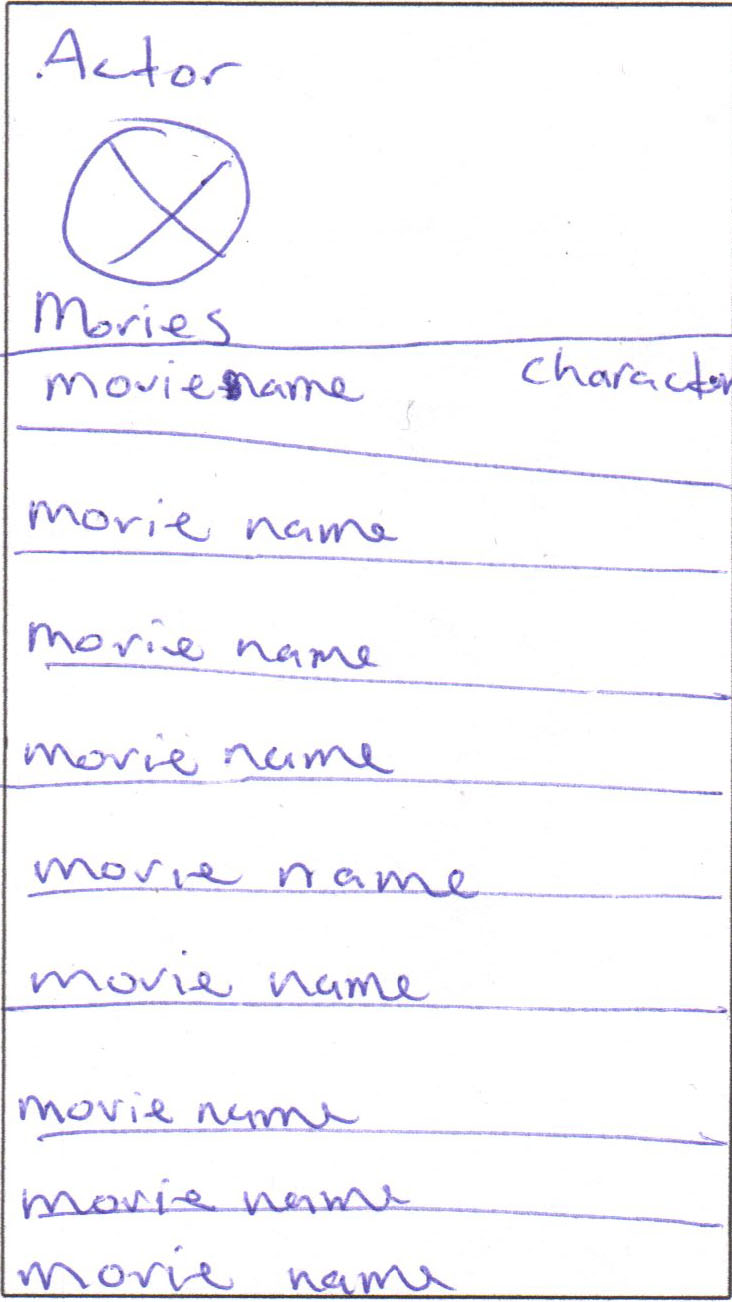 Actor
Movies
movie name character
movie name
movie name
movie name
movie name
movie name
movie name
movie name
movie name